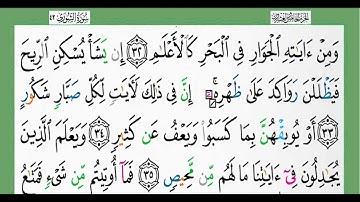 سُورَةُ الشُّورَىٰ ٤٢
وَمِنْ ءَايَٰتِهِ الْجَوَارِ فِي الْبَحْرِ كَالْأَعْلَٰمِ ٣٢ إِن يَشَأْ يُسْكِنِ الرِّيحَ
فَيَظْلَلْنَ رَوَاكِدَ عَلَىٰ ظَهْرِهِ إِنَّ فِي ذَٰلِكَ لَأَيَٰتٍ لِّكُلِّ صَبَّارٍ شَكُورٍ
٣٣ أَوْ يُوبِقْهُنَّ بِمَا كَسَبُوا۟ وَيَعْفُ عَن كَثِيرٍ ٣٤ وَيَعْلَمَ الَّذِينَ
يُجَٰدِلُونَ فِي ءَايَٰتِنَا مَا لَهُم مِّن مَّحِيصٍ ٣٥ فَمَا أُوتِيتُم مِّن شَيْءٍ فَمَتَٰعُ